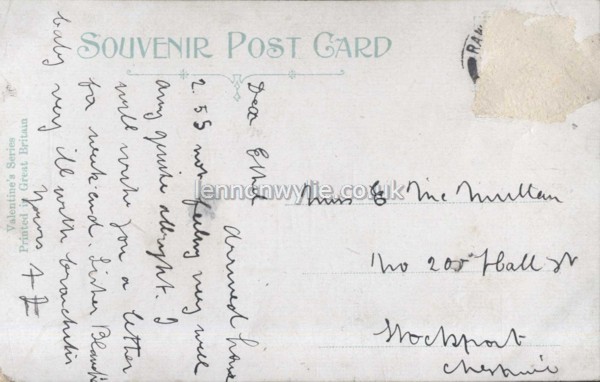 SOUVENIR POST CARD
Dear Ethel Arrived home
2.55 not feeling very well
quite allright. I
will write you a letter
for weekend. Sister
baby very ill with bronchitis
Yours
Miss E McMullan
No 205 Hall St
Stockport
Cheshire
Valentine's Series
Printed in Great Britain
lennonwylie.co.uk